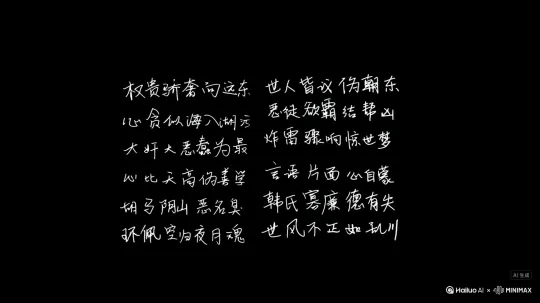 权贵骄奢向远东
心贪似海入湖云
大奸大恶蠢为最
心比天高伪善学
胡马阴山恶名臭
环佩空归夜月魂
世人皆议伪朝东
恶徒欲霸结帮凶
炸雷骤响惊世梦
言语片面心自蒙
韩氏寡廉德有失
世风不正如乱川
AI 生成
Hailuo AI × MINIMAX